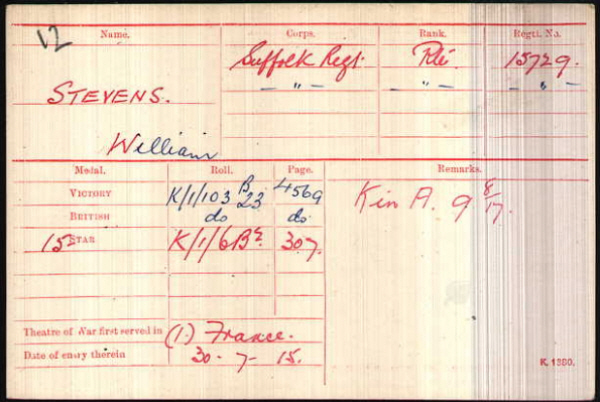 12
Name. Corps. Rank. Regtl. No.
Suffolk Regt. Pte. 15729.
— " — — " — — " —
STEVENS.
William
Medal. Roll. Page. Remarks.
VICTORY K/1/103 B 23 4569 Kin A. 9 8/17.
BRITISH do do
15 STAR K/1/6 B2 307.
Theatre of War first served in (1) France.
Date of entry therein 30 - 7 - 15.
K. 1380.